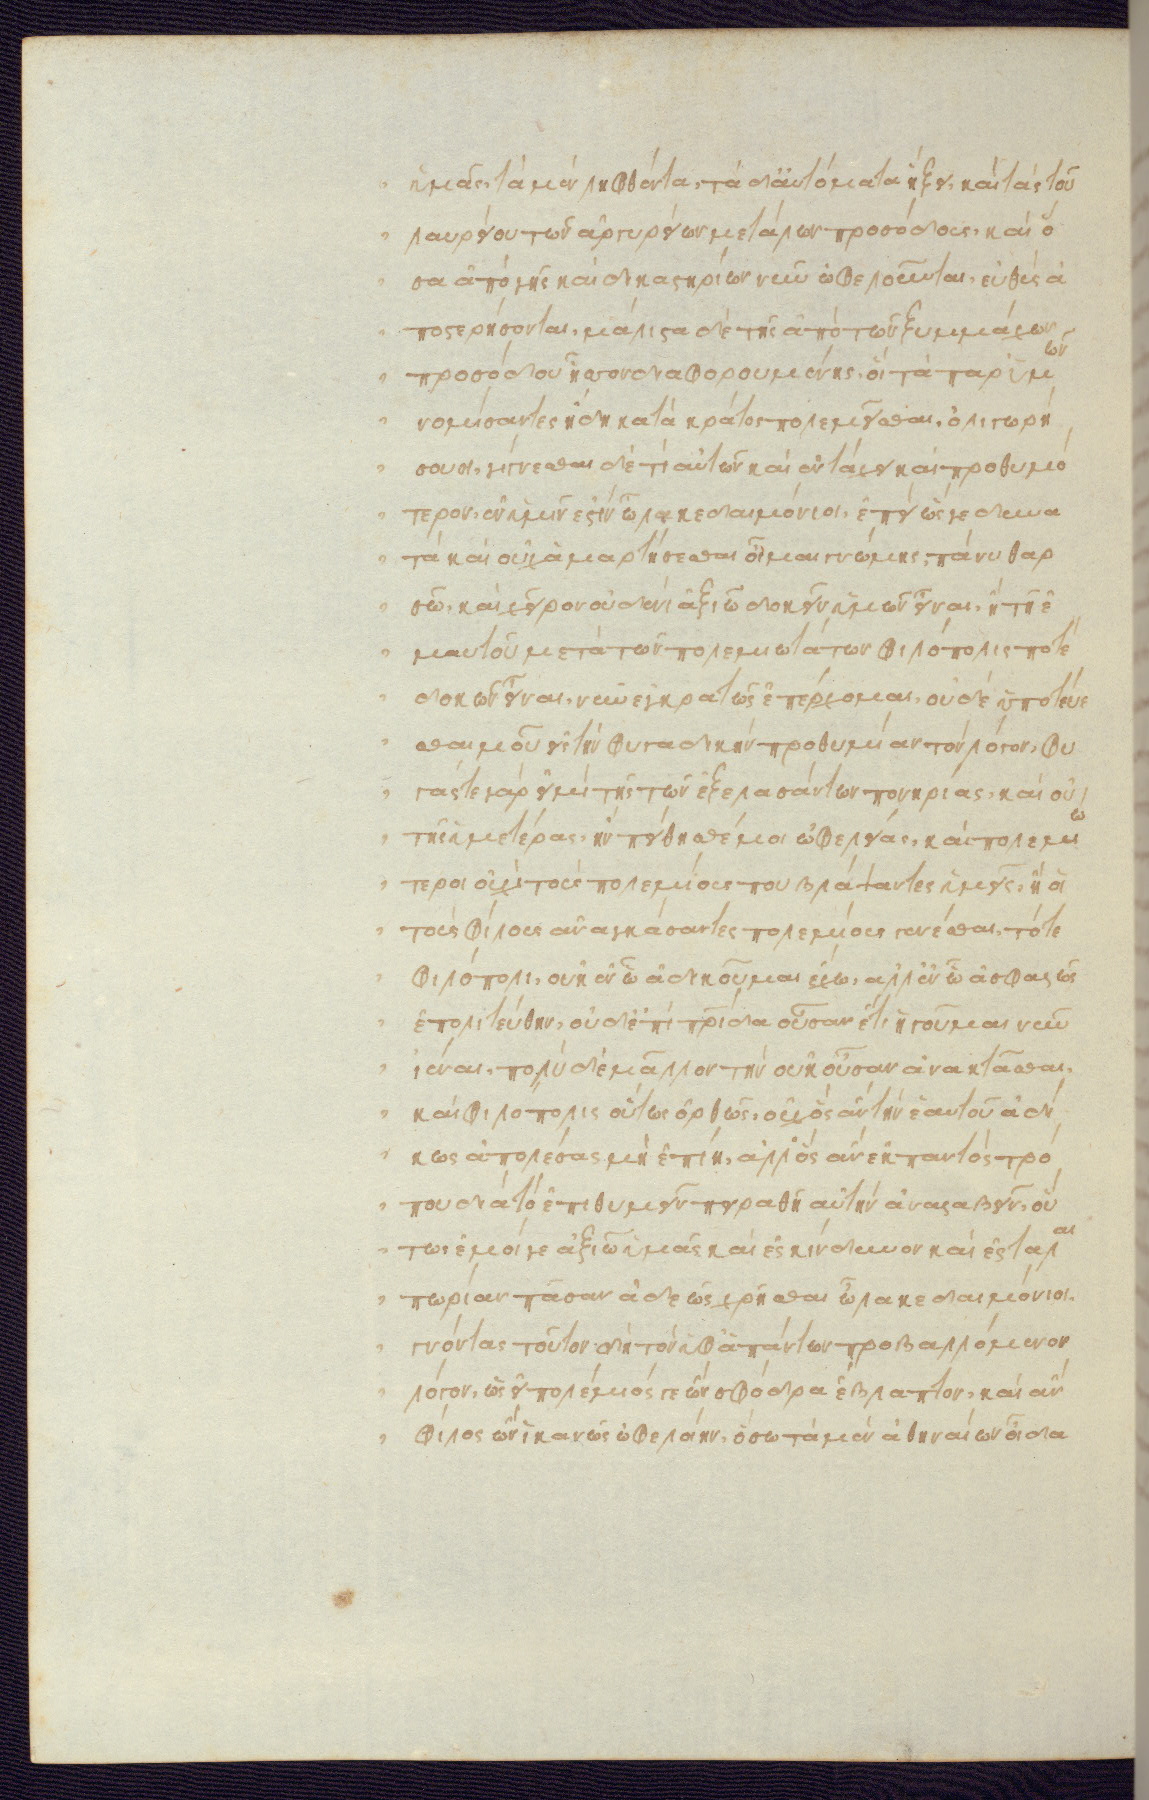 ὑμᾶς, τὰ μὲν ληφθέντα, τὰ δ' αὐτόματα ἥξει, καὶ τὰς τοῦ
λαυρείου τῶν ἀργυρείων μετάλων προσόδους, καὶ ὅ
σα ἀπὸ γῆς καὶ δικαστηρίων νῦν ὠφελοῦνται, εὐθὺς ἀ
ποστερήσονται, μάλιστα δὲ τῆς ἀπὸ τῶν ξυμμάχων
προσόδου ἧσσον διαφορουμένης, οἳ τὰ παρ' ὑμῶν
νομίσαντες ἤδη κατὰ κράτος πολεμεῖσθαι, ὀλιγωρή
σουσι, γίγνεσθαι δέ τι αὐτῶν καὶ ἐν τάχει καὶ προθυμό
τερον, ἐν ὑμῖν ἐστὶν ὦ λακεδαιμόνιοι, ἐπεὶ ὥς γε δυνα
τὰ καὶ οὐχ ἁμαρτήσεσθαι οἶμαι γνώμης, πάνυ θαρ
σῶ, καὶ χεῖρον οὐδενὶ ἀξιῶ δοκεῖν ὑμῶν εἶναι, εἰ τῇ ἐ
μαυτοῦ μετὰ τῶν πολεμιωτάτων φιλόπολίς ποτέ
δοκῶν εἶναι, νῦν ἐγκρατῶς ἐπέρχομαι, οὐδὲ ὑποπτεύε
σθαι μου ἐς τὴν φυγαδικὴν προθυμίαν τὸν λόγον, φυ
γάς τε γάρ εἰμι τῆς τῶν ἐξελασάντων πονηρίας, καὶ οὐ
τῆς ὑμετέρας, ἢν πείθησθέ μοι ὠφελείας, καὶ πολεμιώ
τεροι οὐχ οἱ τοὺς πολεμίους που βλάψαντες ὑμεῖς, ἢ οἱ
τοὺς φίλους ἀναγκάσαντες πολεμίους γενέσθαι, τό τε
φιλόπολι, οὐκ ἐν ᾧ ἀδικοῦμαι ἔχω, ἀλλ' ἐν ᾧ ἀσφαλῶς
ἐπολιτεύθην, οὐδ' ἐπὶ πρίδα οὖσαν ἔτι ἡγοῦμαι νῦν
ἰέναι, πολὺ δὲ μᾶλλον τὴν οὐκ οὖσαν ἀνακτᾶσθαι,
καὶ φιλόπολις οὗτος ὀρθῶς, οὐχ ὃς ἂν τὴν ἑαυτοῦ ἀδί
κως ἀπολέσας μὴ ἐπίῃ, ἀλλ' ὃς ἂν ἐκ παντὸς τρό
που διὰ τὸ ἐπιθυμεῖν πειραθῇ αὐτὴν ἀναλαβεῖν, οὕ
τως ἐμοί γε ἀξιῶ ὑμᾶς καὶ ἐς κίνδυνον καὶ ἐς ταλαι
πωρίαν πᾶσαν ἀδεῶς χρῆσθαι ὦ λακεδαιμόνιοι,
γνόντας τοῦτον δὴ τὸν ὑφ' ἁπάντων προβαλλόμενον
λόγον, ὡς εἰ πολέμιός γε ὢν σφόδρα ἔβλαπτον, κἂν ἂν
φίλος ὢν ἱκανῶς ὠφελοίην, ὅσῳ τὰ μὲν ἀθηναίων οἶδα